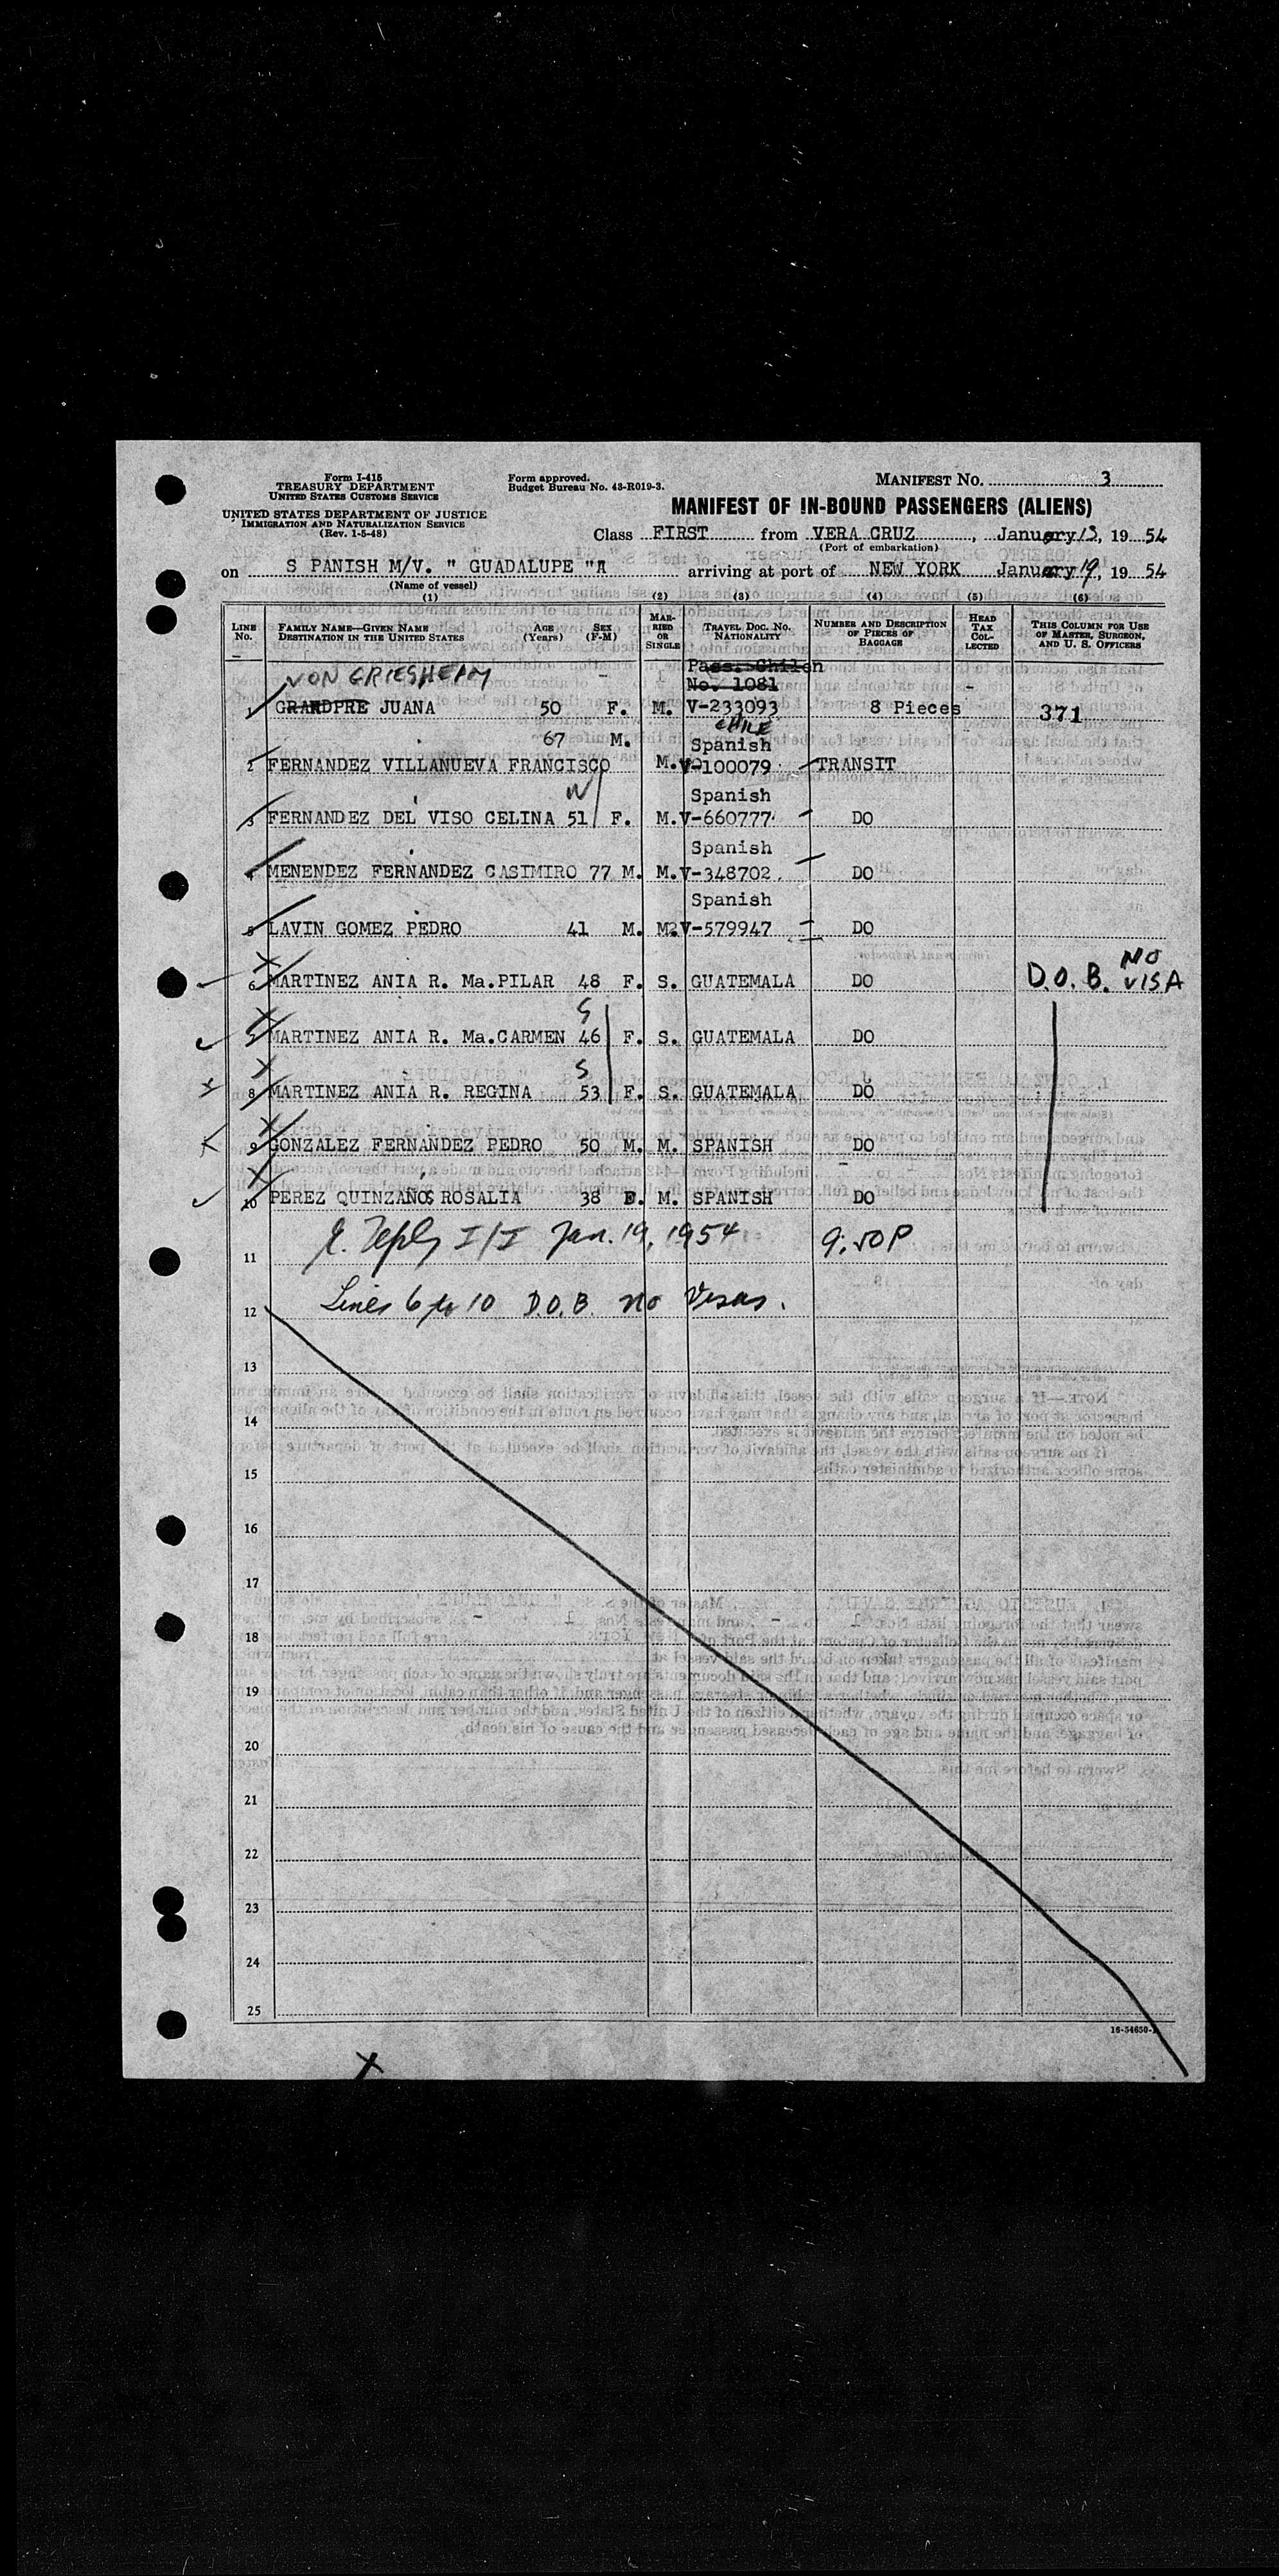 Form I-415
TREASURY DEPARTMENT
UNITED STATES CUSTOMS SERVICE
Form approved.
Budget Bureau No. 43-R019-3.
MANIFEST NO. 3
UNITED STATES DEPARTMENT OF JUSTICE
IMMIGRATION AND NATURALIZATION SERVICE
(Rev. 1-5-48)
MANIFEST OF IN-BOUND PASSENGERS (ALIENS)
Class FIRST from VERA CRUZ, January 13, 19 54
(Port of embarkation)
on S PANISH M/V. " GUADALUPE " arriving at port of NEW YORK January 19, 19 54
(Name of vessel)
(1) (2) (3) (4) (5) (6)
LINE NO. FAMILY NAME—GIVEN NAME DESTINATION IN THE UNITED STATES AGE (YEARS) SEX (F-M) MARRIED OR SINGLE TRAVEL DOC. NO. NATIONALITY NUMBER AND DESCRIPTION OF PIECES OF BAGGAGE HEAD TAX COLLECTED THIS COLUMN FOR USE OF MASTER, SURGEON, AND U. S. OFFICERS
Pass. Chilen
VON GRIESHEIM No. 1081
1 GRANDPRE JUANA 50 F. M. V-233093 8 Pieces 371
CHILE
67 M. Spanish
2 FERNANDEZ VILLANUEVA FRANCISCO M. V-100079 TRANSIT
W Spanish
3 FERNANDEZ DEL VISO CELINA 51 F. M. V-660777 DO
Spanish
4 MENENDEZ FERNANDEZ CASIMIRO 77 M. M. V-348702 DO
Spanish
5 LAVIN GOMEZ PEDRO 41 M. M. V-579947 DO
6 MARTINEZ ANIA R. Ma.PILAR 48 F. S. GUATEMALA DO D.O.B. NO VISA
S
7 MARTINEZ ANIA R. Ma.CARMEN 46 F. S. GUATEMALA DO
S
8 MARTINEZ ANIA R. REGINA 53 F. S. GUATEMALA DO
9 GONZALEZ FERNANDEZ PEDRO 50 M. M. SPANISH DO
10 PEREZ QUINZAÑOS ROSALIA 38 F. M. SPANISH DO
I/I Jan. 19, 1954 9:50P
11
Lines 6 to 10 D.O.B. no Visas.
12
13
14
15
16
17
18
19
20
21
22
23
24
25